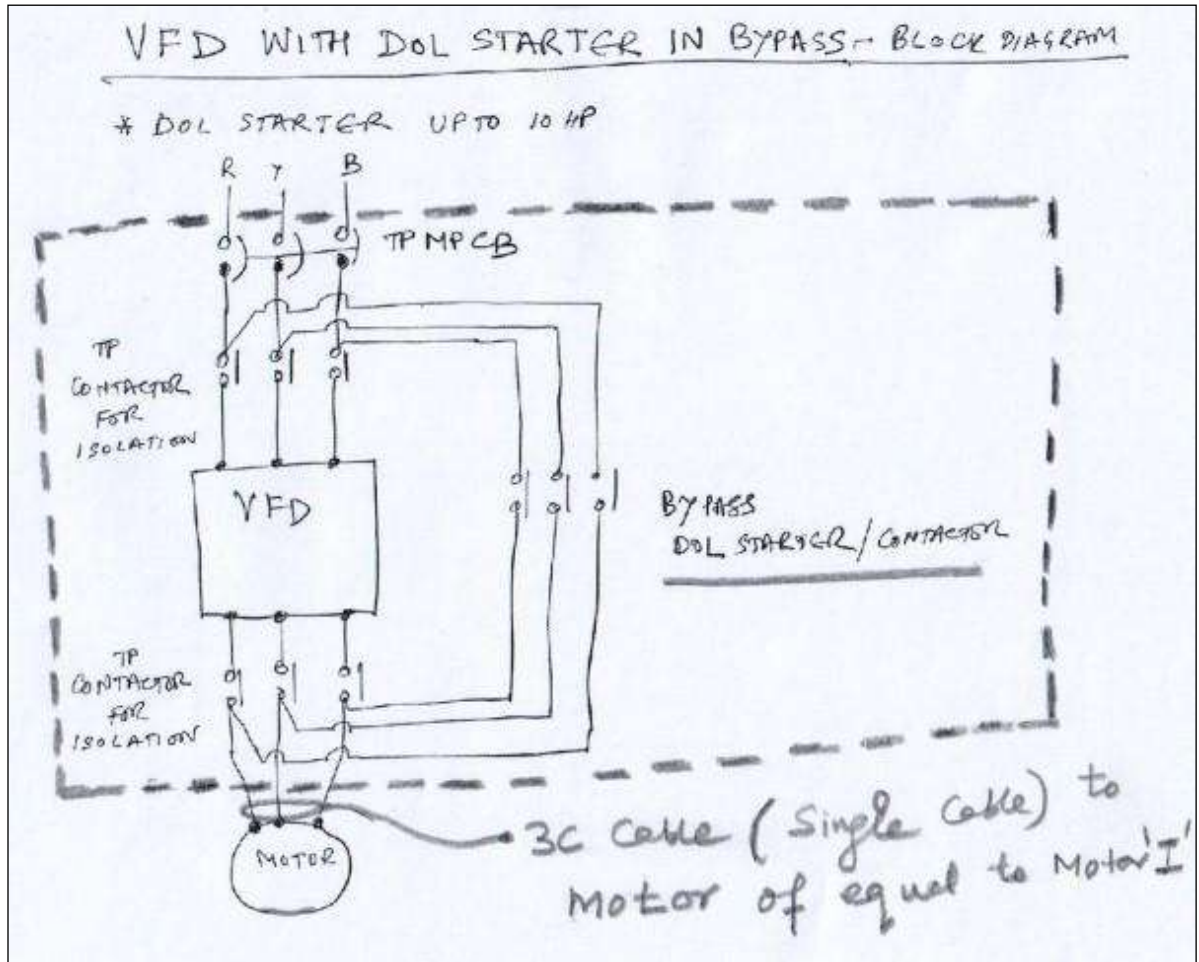 VFD WITH DOL STARTER IN BYPASS - BLOCK DIAGRAM
* DOL STARTER UPTO 10 HP
R Y B
TP MPCB
TP
CONTACTOR
FOR
ISOLATION
VFD
BYPASS
DOL STARTER/CONTACTOR
TP
CONTACTOR
FOR
ISOLATION
3C Cable (Single Cable) to
Motor of equal to Motor 'I'
MOTOR